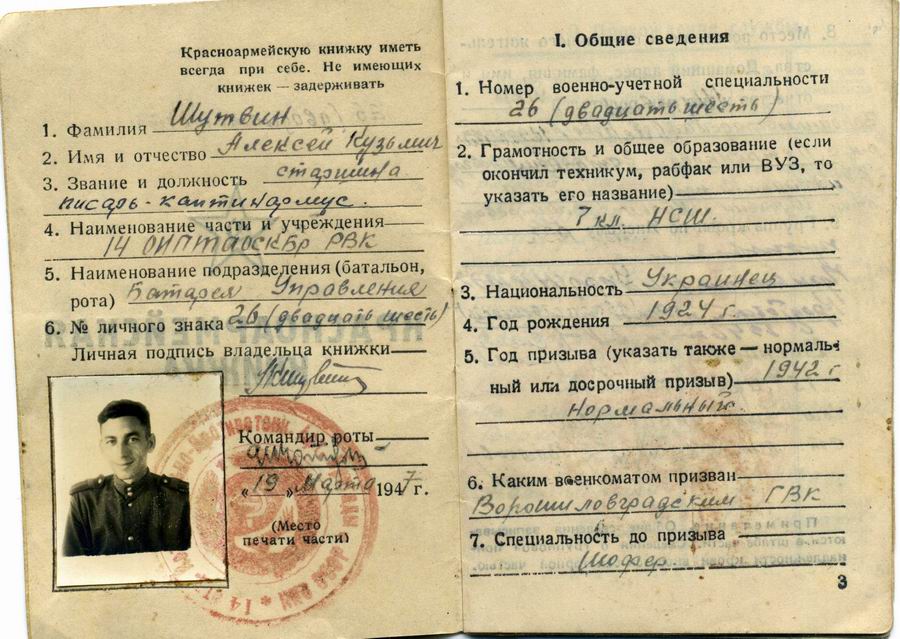 Красноармейскую книжку иметь
всегда при себе. Не имеющих
книжек — задерживать
1. Фамилия Шутвин
2. Имя и отчество Алексей Кузьмич
3. Звание и должность старшина
писарь-каптинармус.
4. Наименование части и учреждения
14 ОИПТАДСКБР РВК
5. Наименование подразделения (батальон,
рота) Батарея Управления
6. № личного знака 26 (двадцать шесть)
Личная подпись владельца книжки
Командир роты
„19" Марта 1947 г.
(Место
печати части)
I. Общие сведения
1. Номер военно-учетной специальности
26 (двадцать шесть)
2. Грамотность и общее образование (если
окончил техникум, рабфак или ВУЗ, то
указать его название)
7 кл. НСШ.
3. Национальность Украинец
4. Год рождения 1924 г.
5. Год призыва (указать также — нормаль-
ный или досрочный призыв) 1942 г
Нормальный.
6. Каким военкоматом призван
Ворошиловградским ГВК
7. Специальность до призыва
Шофер
3